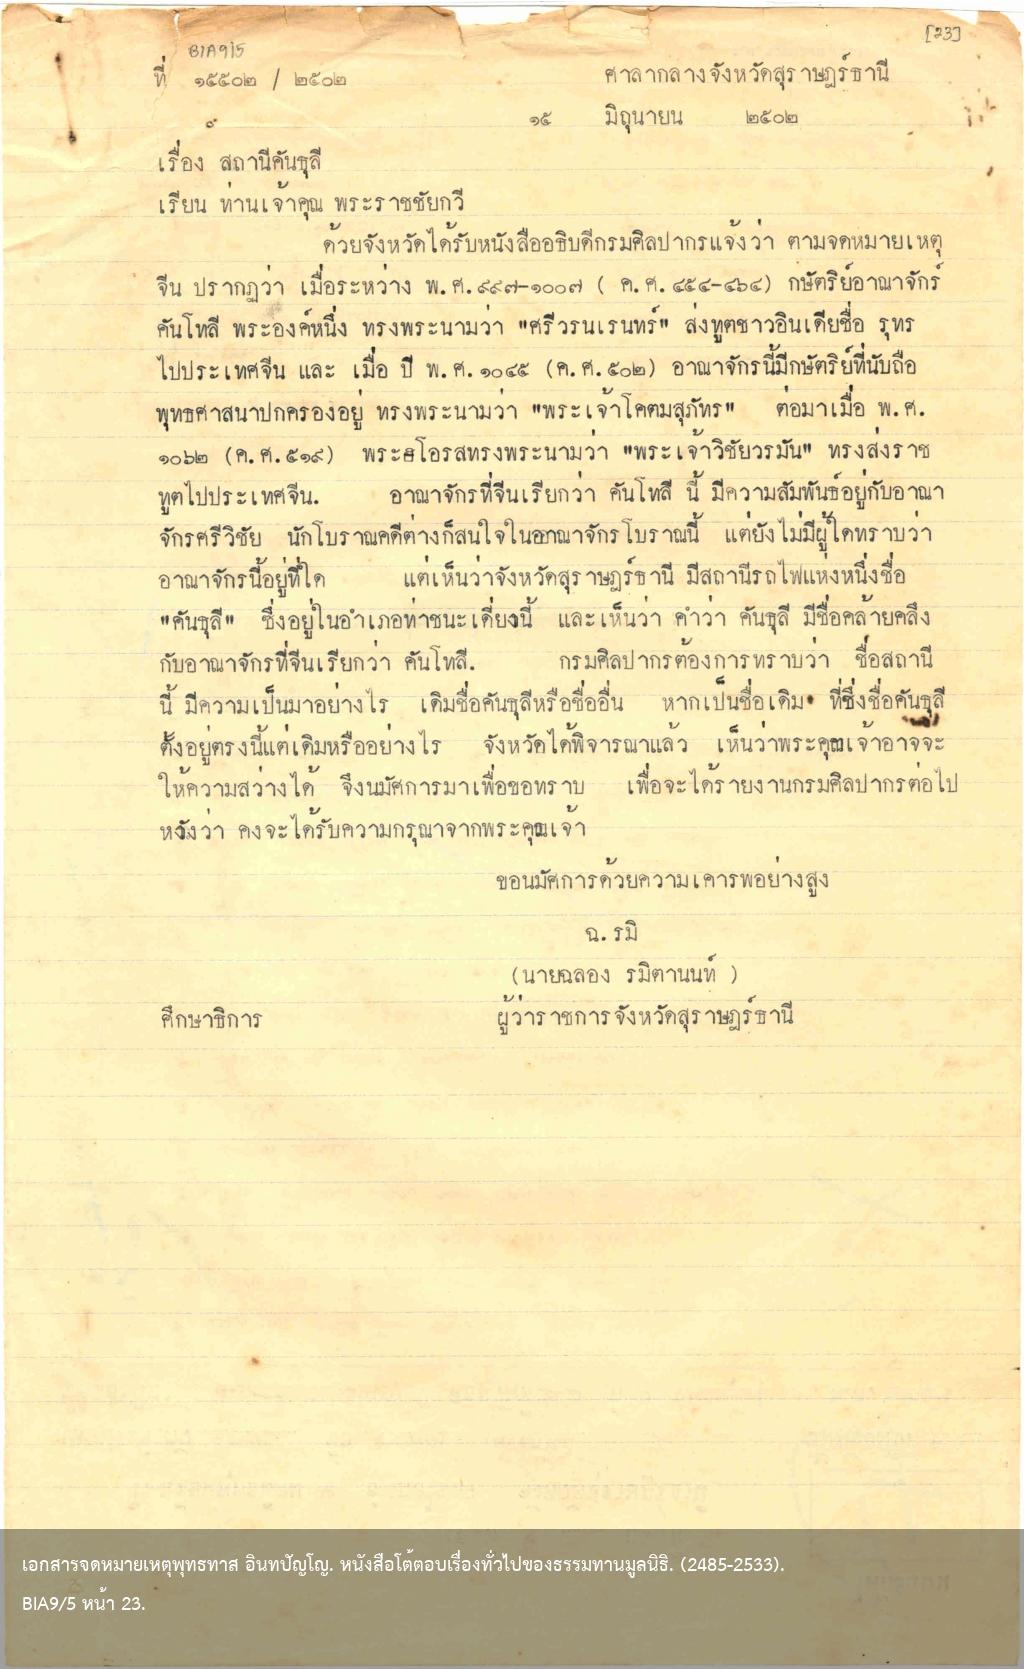 [23]
BIA9/5
ที่ ๑๕๕๐๒ / ๒๕๐๒ ศาลากลางจังหวัดสุราษฎร์ธานี
๑๕ มิถุนายน ๒๕๐๒
เรื่อง สถานีคันธุลี
เรียน ท่านเจ้าคุณ พระราชชัยกวี
ด้วยจังหวัดได้รับหนังสืออธิบดีกรมศิลปากรแจ้งว่า ตามจดหมายเหตุ
จีน ปรากฏว่า เมื่อระหว่าง พ.ศ.๙๙๗-๑๐๐๗ ( ค.ศ.๔๕๔-๔๖๔) กษัตริย์อาณาจักร์
คันโทลี พระองค์หนึ่ง ทรงพระนามว่า "ศรีวรนเรนทร์" ส่งทูตชาวอินเดียชื่อ รุทร
ไปประเทศจีน และ เมื่อ ปี พ.ศ.๑๐๔๕ (ค.ศ.๕๐๒) อาณาจักรนี้มีกษัตริย์ที่นับถือ
พุทธศาสนาปกครองอยู่ ทรงพระนามว่า "พระเจ้าโคตมสุภัทร" ต่อมาเมื่อ พ.ศ.
๑๐๖๒ (ค.ศ.๕๑๙) พระโอรสทรงพระนามว่า "พระเจ้าวิชัยวรมัน" ทรงส่งราช
ทูตไปประเทศจีน. อาณาจักรที่จีนเรียกว่า คันโทลี นี้ มีความสัมพันธ์อยู่กับอาณา
จักรศรีวิชัย นักโบราณคดีต่างก็สนใจในอาณาจักรโบราณนี้ แต่ยังไม่มีผู้ใดทราบว่า
อาณาจักรนี้อยู่ที่ใด แต่เห็นว่าจังหวัดสุราษฎร์ธานี มีสถานีรถไฟแห่งหนึ่งชื่อ
"คันธุลี" ซึ่งอยู่ในอำเภอท่าชนะเดี๋ยวนี้ และเห็นว่า คำว่า คันธุลี มีชื่อคล้ายคลึง
กับอาณาจักรที่จีนเรียกว่า คันโทลี. กรมศิลปากรต้องการทราบว่า ชื่อสถานี
นี้ มีความเป็นมาอย่างไร เดิมชื่อคันธุลีหรือชื่ออื่น หากเป็นชื่อเดิม ที่ซึ่งชื่อคันธุลี
ตั้งอยู่ตรงนี้แต่เดิมหรืออย่างไร จังหวัดได้พิจารณาแล้ว เห็นว่าพระคุณเจ้าอาจจะ
ให้ความสว่างได้ จึงนมัศการมาเพื่อขอทราบ เพื่อจะได้รายงานกรมศิลปากรต่อไป
หวังว่า คงจะได้รับความกรุณาจากพระคุณเจ้า
ขอนมัศการด้วยความเคารพอย่างสูง
ฉ.รมิ
(นายฉลอง รมิตานนท์ )
ศึกษาธิการ ผู้ว่าราชการจังหวัดสุราษฎร์ธานี
เอกสารจดหมายเหตุพุทธทาส อินทปัญโญ. หนังสือโต้ตอบเรื่องทั่วไปของธรรมทานมูลนิธิ. (2485-2533).
BIA9/5 หน้า 23.